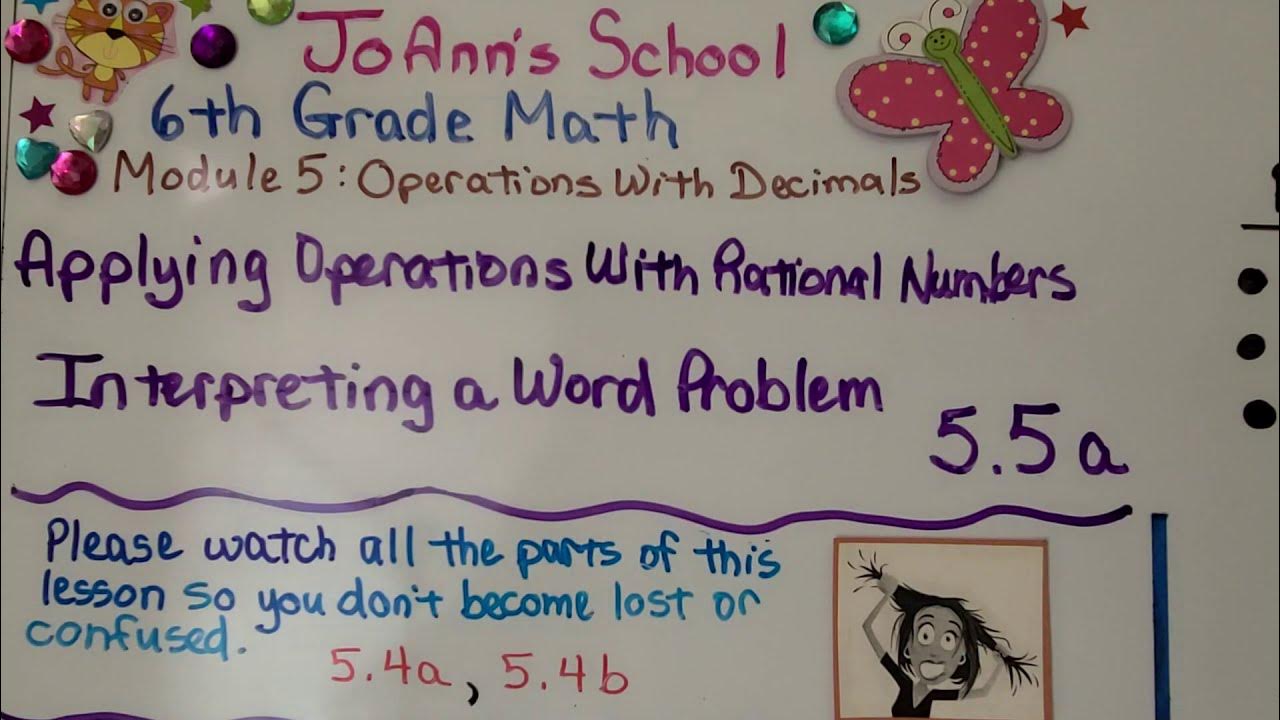 JoAnn's School
6th Grade Math
Module 5: Operations With Decimals
Applying Operations With Rational Numbers
Interpreting a Word Problem
5.5a
Please watch all the parts of this
lesson so you don't become lost or
confused.
5.4a, 5.4b